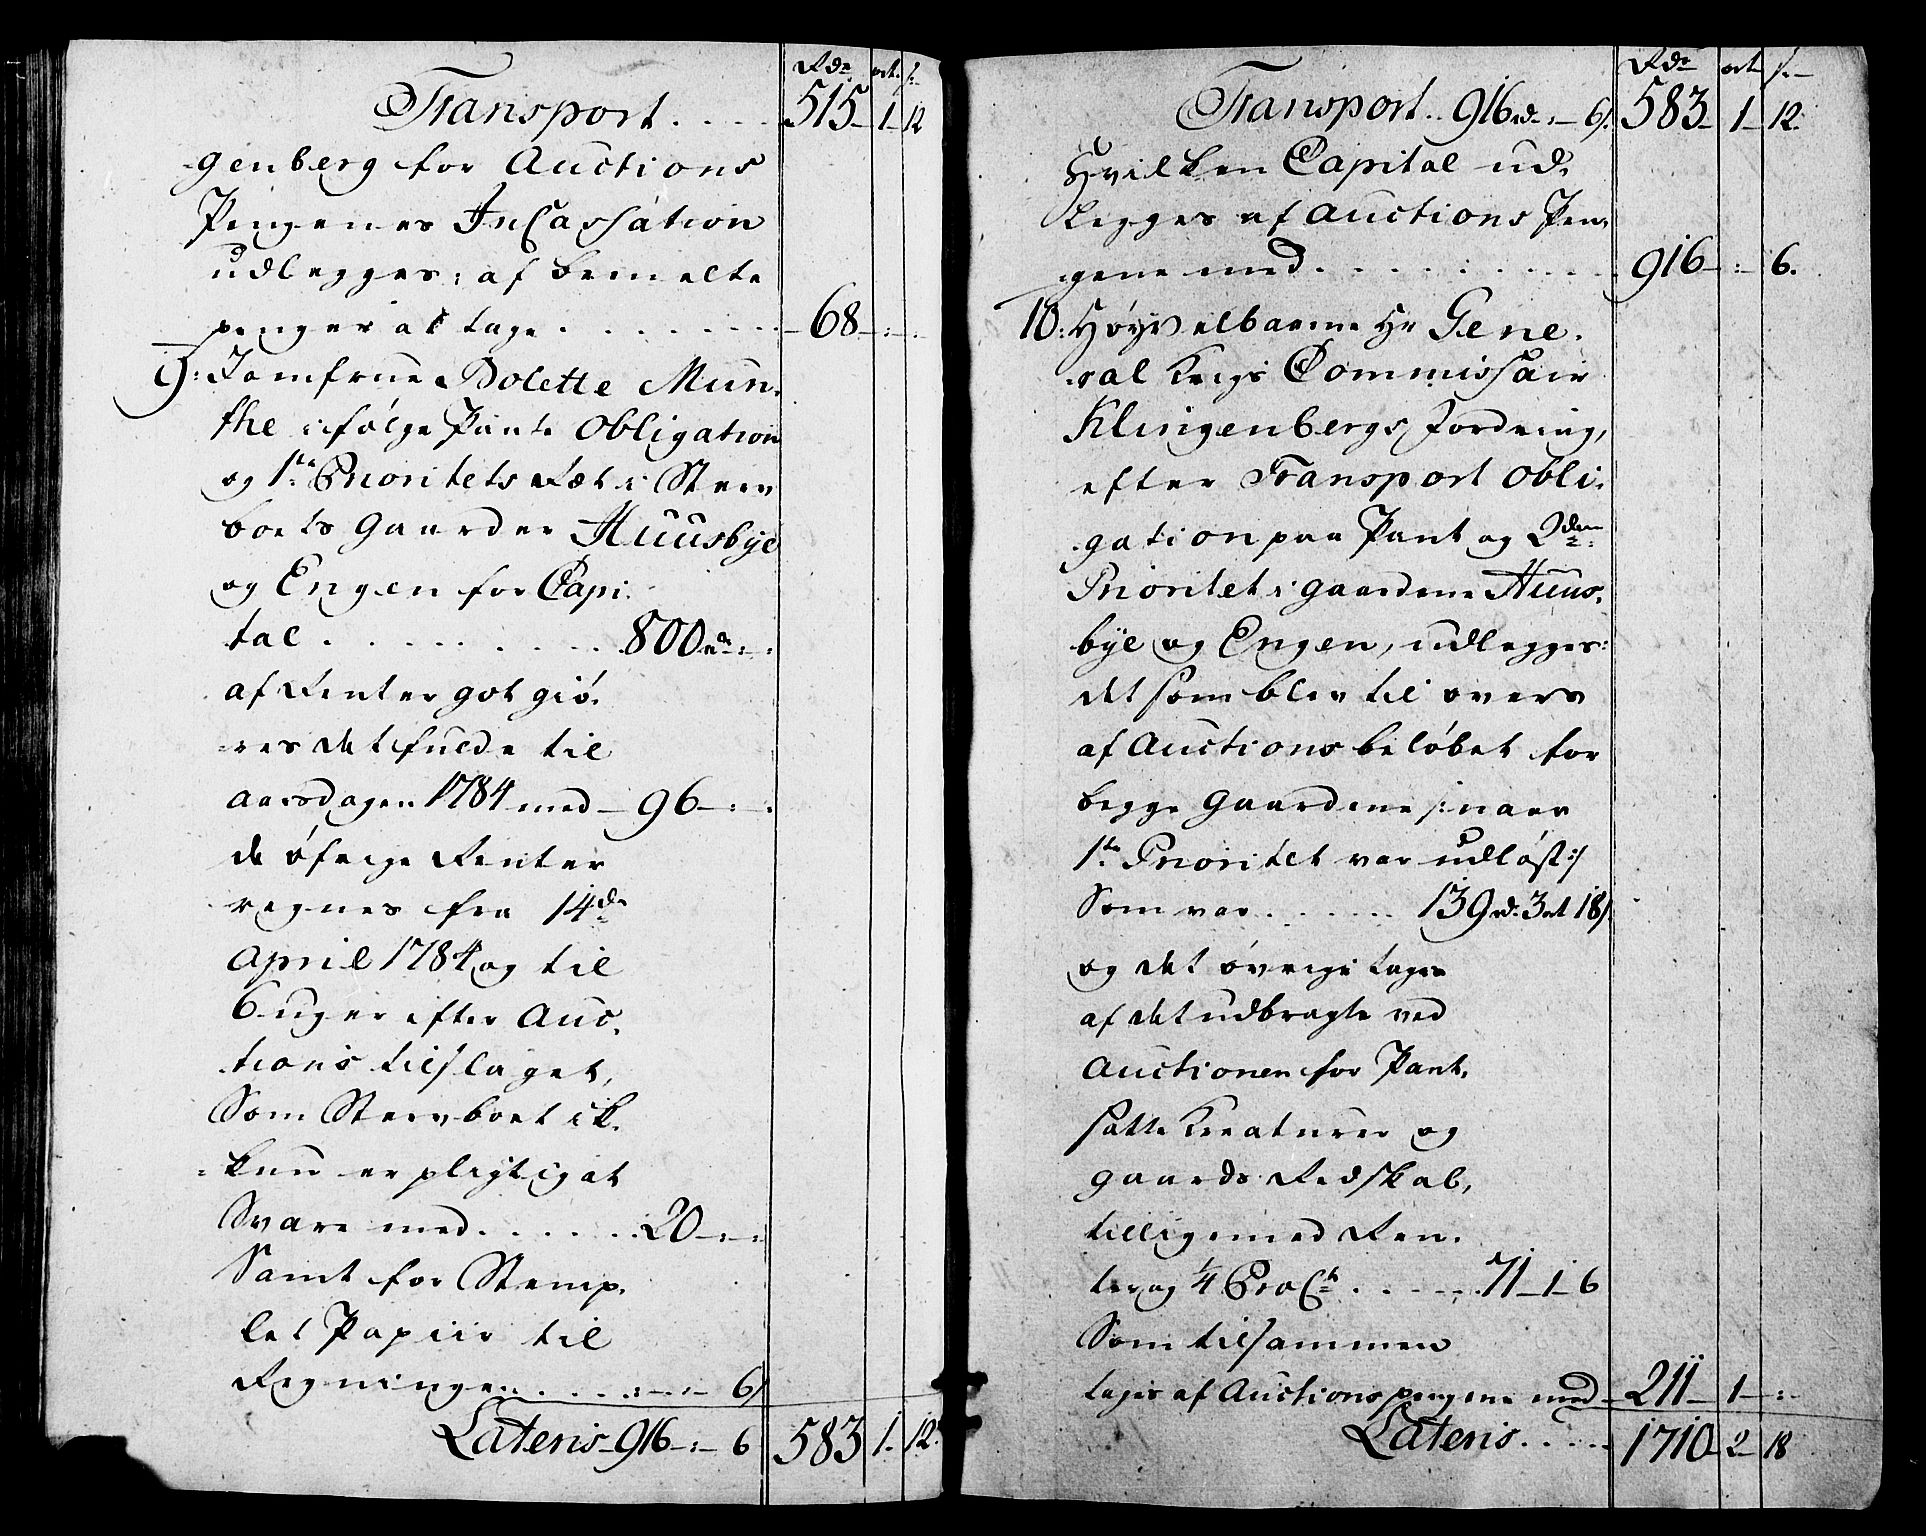 Rd. ort. s.
Transport . . . . 515 - 1 - 12
genberg for Auctions
Pengenes InCassation
udlegges; af bemelte
penger at tage . . . . . . . . 68 - : - .
9: Jomfrue Bolette Mun-
the ifølge Pante Obligation
og 1te Prioritets Ræt i Sterv
boets Gaarder Huusbye
og Engen for Capi-
tal . . . . . . . . . 800 rd - : - :
af Renter got giö-
res det fulde til
aarsdagen 1784 med - 96 - : - :
de öfrige Renter
regnes fra 14de
April 1784 og til
6 uger efter Auc-
tions tilslaget,
Som Stervboet ik-
kun er pligtig at
Svare med . . . . . . 20 - : - :
Samt for Stemp-
let Papiir til
Regningen . . . . : - : - 6 s
Lateris - 916 - : - 6 583 1. 12.
Rd. ort s. -
Transport . . 916 rd - : - 6 s. 583 - 1 - 12.
Hvilken Capital ud-
legges af Auctions Pen-
gene med . . . . . . . . . 916 - : - 6.
10: Høyvelbaarne Hr Gene-
ral Krigs Commissair
Klingenbergs Fordring,
efter Transport Obli-
gation paa Pant og 2den
Prioritet i gaardene Huus-
bye og Engen, udlegges:
det som blev til overs
af Auctions beløbet for
begge Gaardene /: naar
1te Prioritet var udløst :/
Som var . . . . . . 139 rd. 3 ort 18 s
og det övrige tages
af det udbragte ved
Auctionen for Pant-
satte Kreaturer og
gaards Redskab,
tilligemed Ren-
ter og 1/4 Pro Ct . . . . . . 71 - 1 - 6
Som tilsammen
tages af Auctionspengene med - 211 - 1 - : -
Lateris . . . . . 1710 - 2 - 18